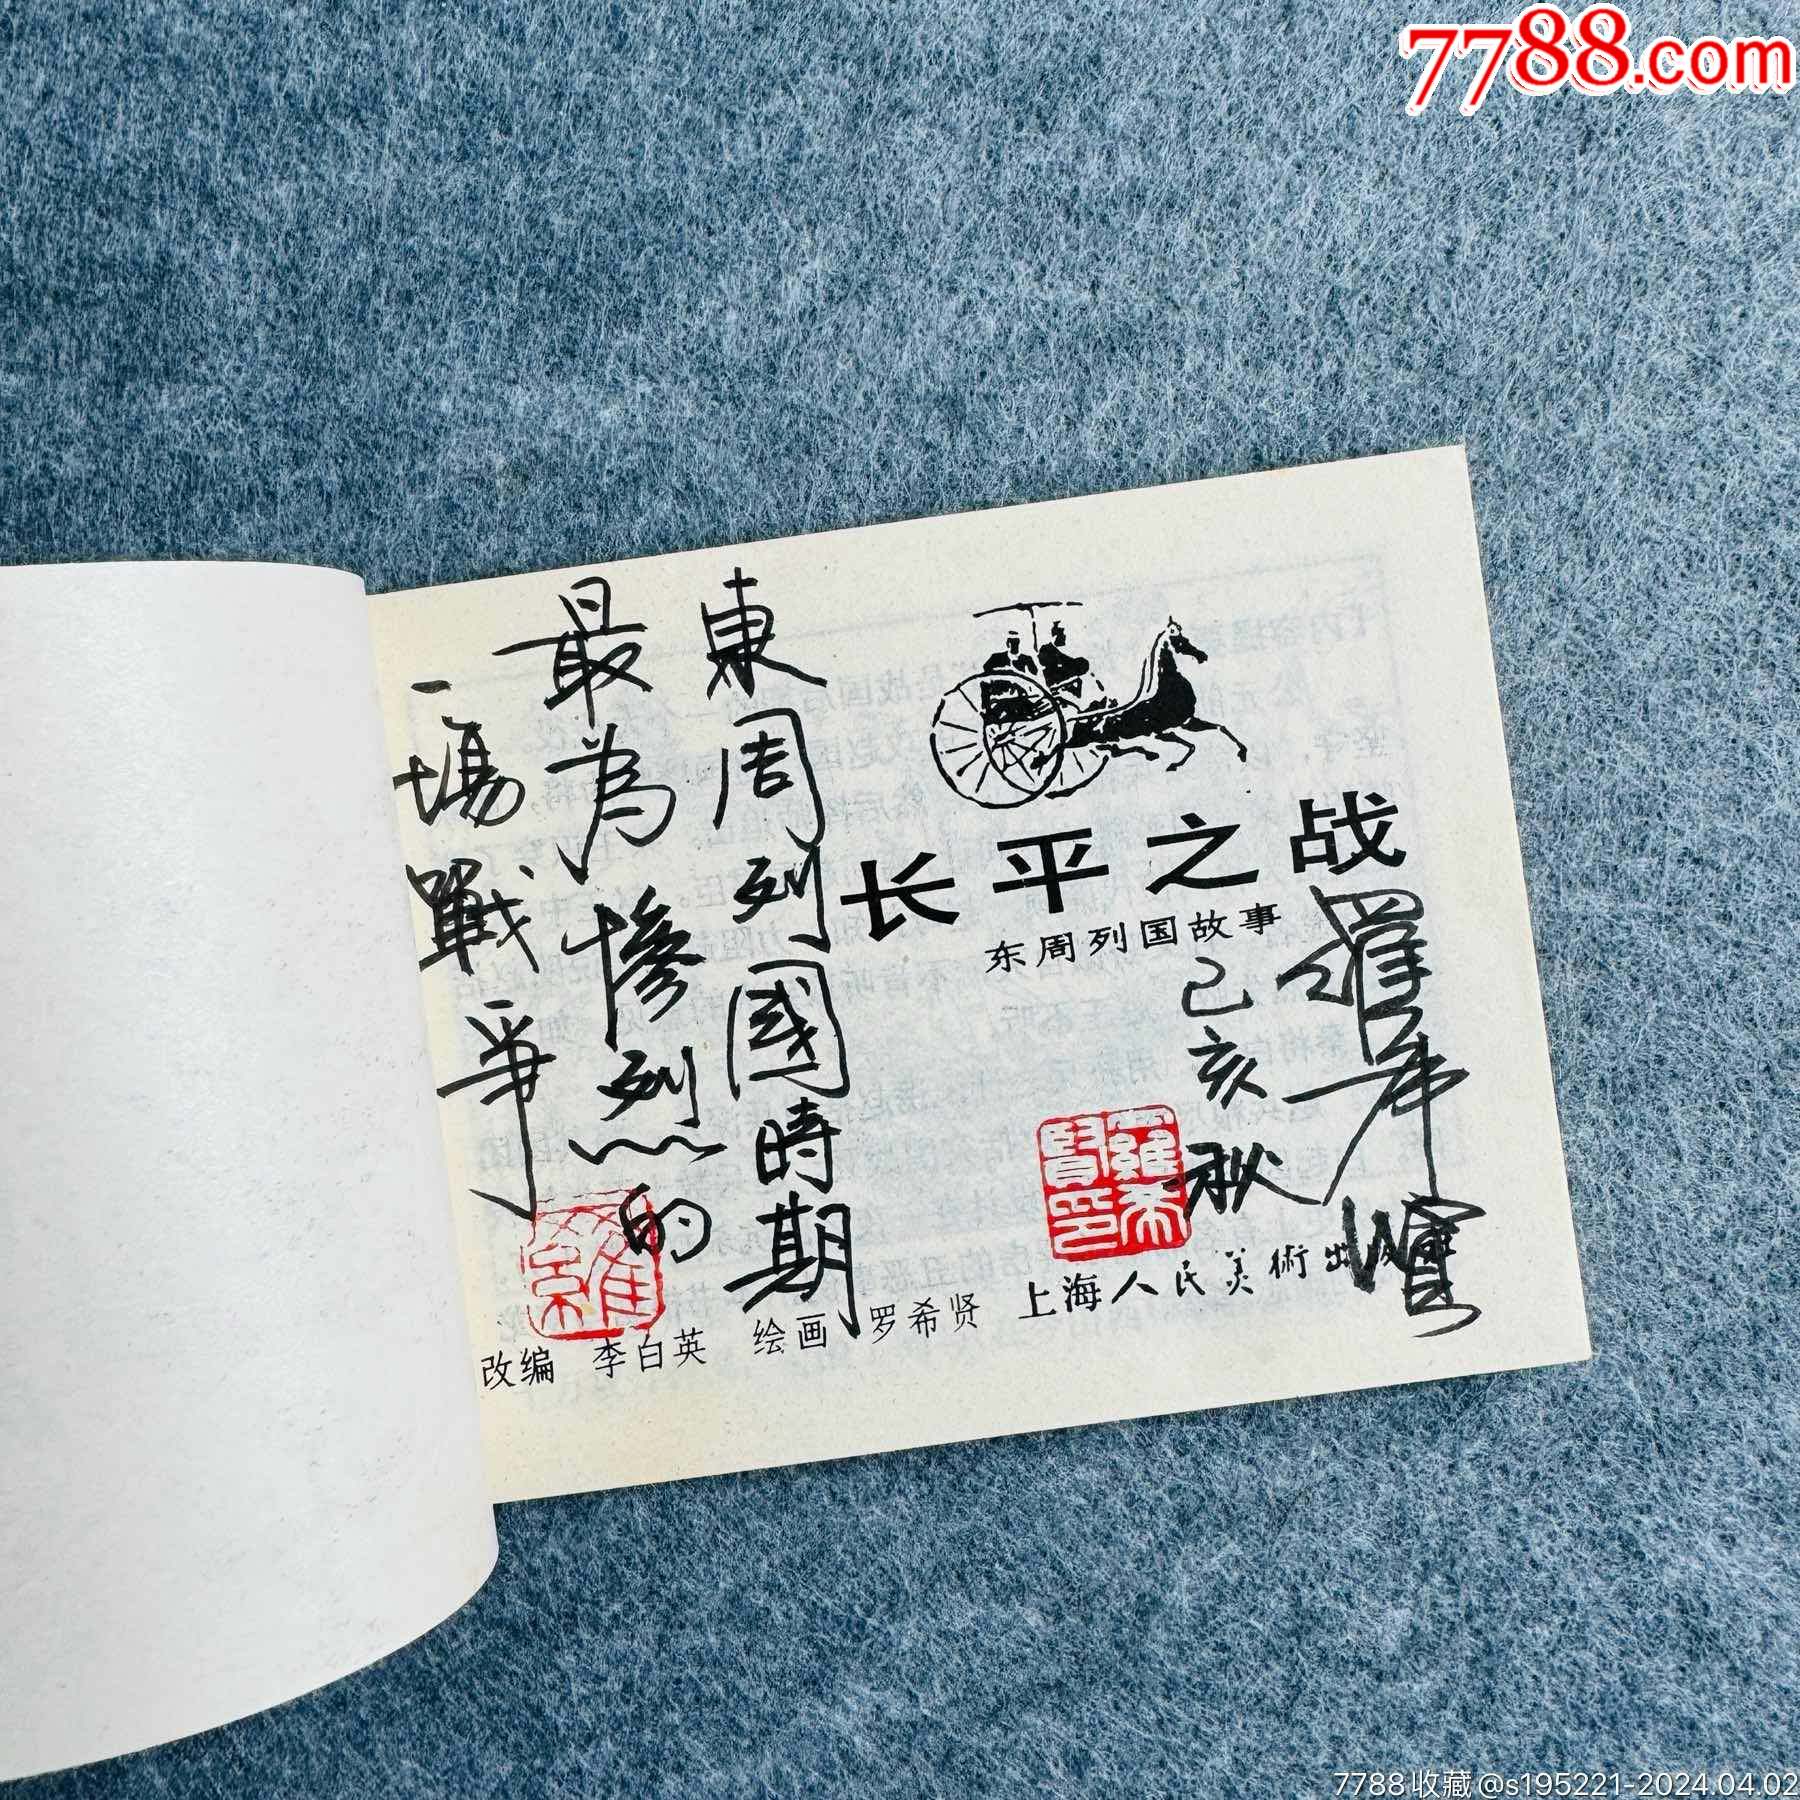 7788.com
長平之战
东周列国故事
東周列國時期
最為惨烈的
一場戰爭
羅希賢
己亥秋
羅希賢印
羅
改编 李白英 绘画 罗希贤 上海人民美術出版
7788收藏@s195221-2024.04.02